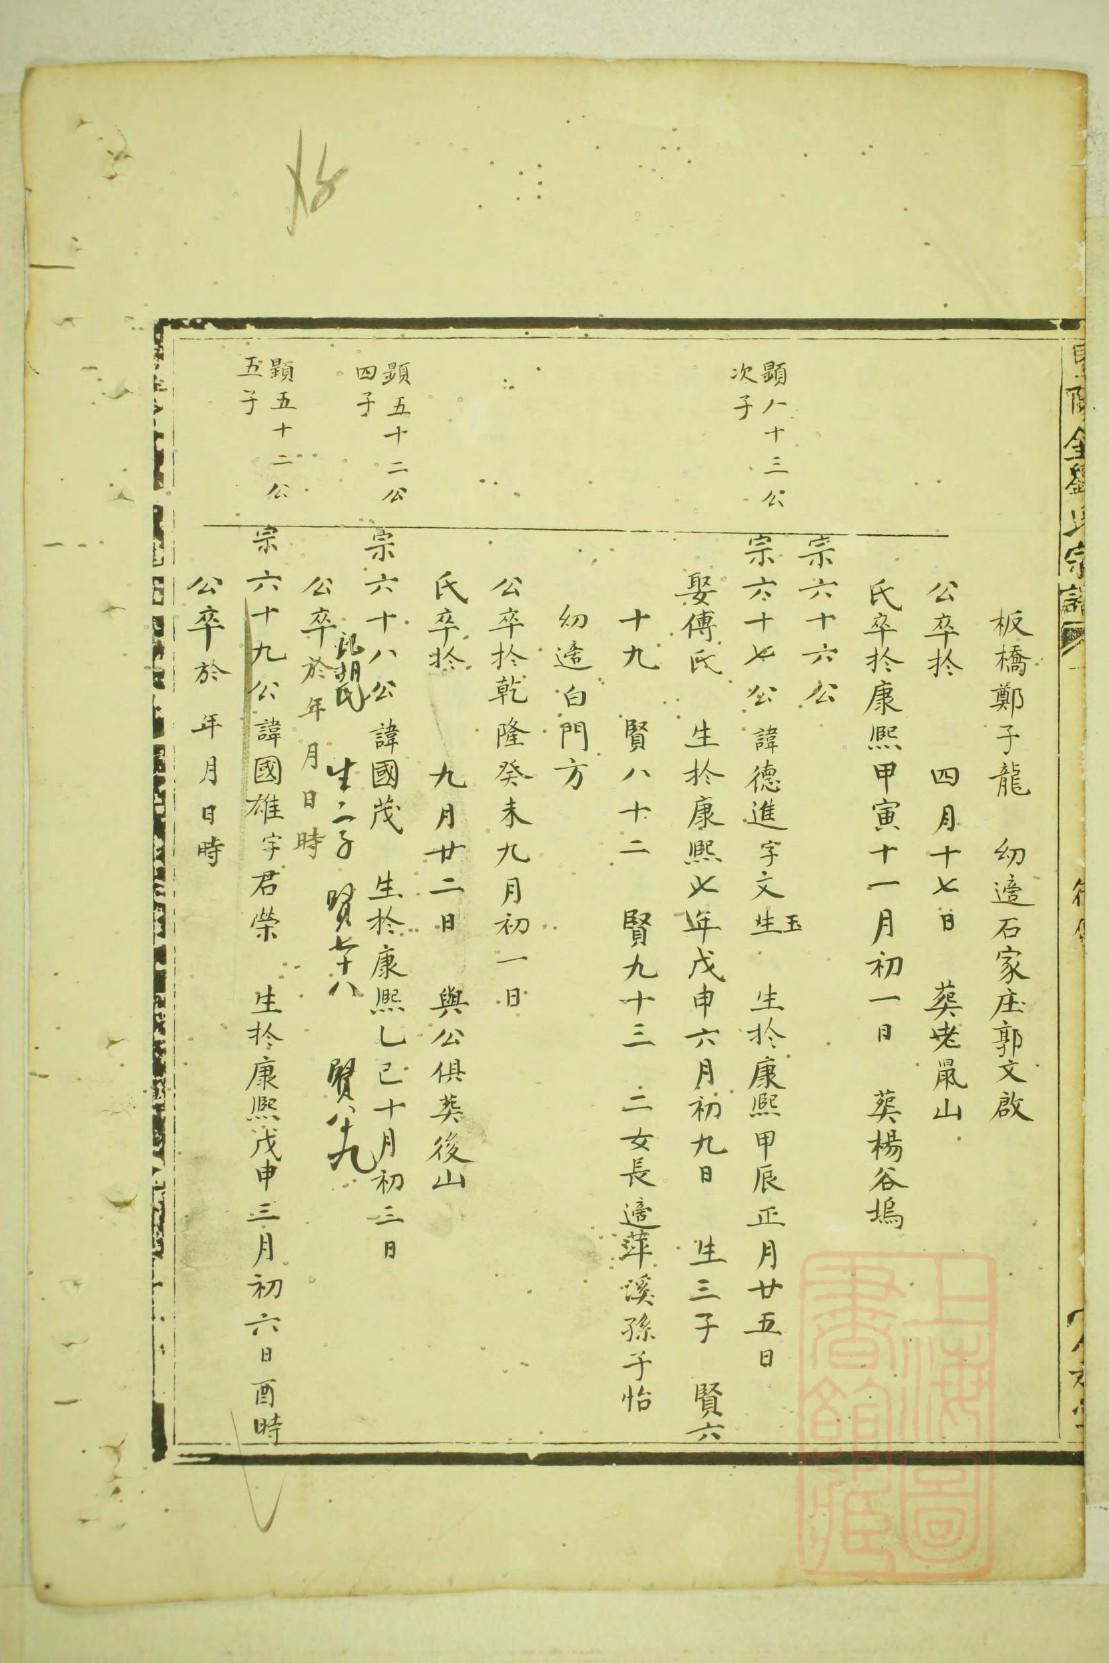 板橋鄭子龍 幼適石家庄郭文啟
公卒於 四月十七日 葬老鼠山
氏卒於康熙甲寅十一月初一日 葬楊谷塢
宗六十六公
顯八十三公
次子
宗六十七公諱德進字文生 玉 生於康熙甲辰正月廿五日
娶傅氏 生於康熙七年戊申六月初九日 生三子 賢六
十九 賢八十二 賢九十三 二女長適萍溪孫子怡
幼適白門方
公卒於乾隆癸未九月初一日
氏卒於 九月廿二日 與公俱葬後山
顯五十二公
四子
宗六十八公諱國茂 生於康熙乙巳十月初三日
胡氏 生二子 賢七十八 賢八十九
公卒於 年 月 日 時
顯五十二公
五子
宗六十九公諱國雄字君榮 生於康熙戊申三月初六日酉時
公卒於 年 月 日 時
上海圖
書館藏